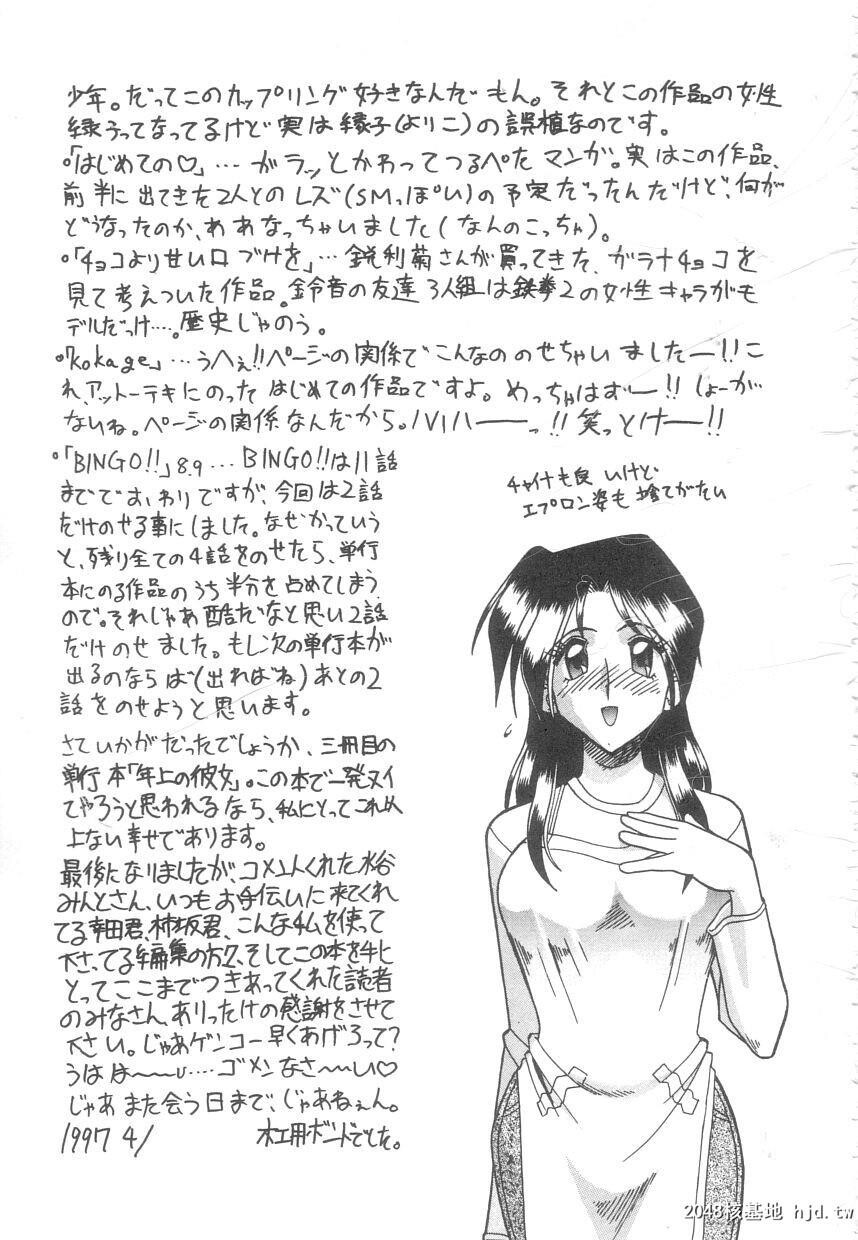 少年。だってこのカップリング好きなんだもん。それとこの作品の女性
縁うってなってるけど実は縁子(よりこ)の誤植なのです。
°「はじめての♡」…ガラッとかわってつるぺたマンガ。実はこの作品、
前半に出てきた2人とのレズ(SMっぽい)の予定だったんだけど、何が
どうなったのか、ああなっちゃいました(なんのこっちゃ)。
°「チョコより甘い口づけを」…鋭利菊さんが買ってきた、ガラナチョコを
見て考えついた作品。鈴音の友達3人組は鉄拳2の女性キャラがモ
デルだっけ…。歴史じゃのう。
°「kokage」…うへぇ!!ページの関係でこんなののせちゃいましたー!!こ
れ、アットーテキにのったはじめての作品ですよ。めっちゃはずー!!しょーが
ないね。ページの関係なんだから。ハハハーーっ!!笑っとけー!!
°「BINGO!!」8.9…BINGO!!は11話
まででおわりですが、今回は2話
だけのせる事にしました。なぜかっていう
と、残り全ての4話をのせたら、単行
本にのる作品のうち半分を占めてしまう
ので。それじゃあ酷だなと思い2話
だけのせました。もし次の単行本が
出るのならば(出ればね)あとの2
話をのせようと思います。
さていかがだったでしょうか、三冊目の
単行本「年上の彼女」。この本で一発ヌイ
てやろうと思われるなら、私にとってこれ以
上ない幸せであります。
最後になりましたが、コメント入くれた水谷
みんとさん、いつもお手伝いに来てくれ
てる幸田君、柿坂君、こんな私を使って
下さってる編集の方々、そしてこの本を手に
とってここまでつきあってくれた読者
のみなさん、ありったけの感謝をさせて
下さい。じゃあゲンコー早くあげろって?
うはは〜〜…ゴメンなさ〜〜い♡
じゃあまた会う日まで、じゃあねぇん。
1997 4/ 木工用ボンドでした。
チャイナも良いけど
エプロン姿も捨てがたい
2048核基地 hjd.tw